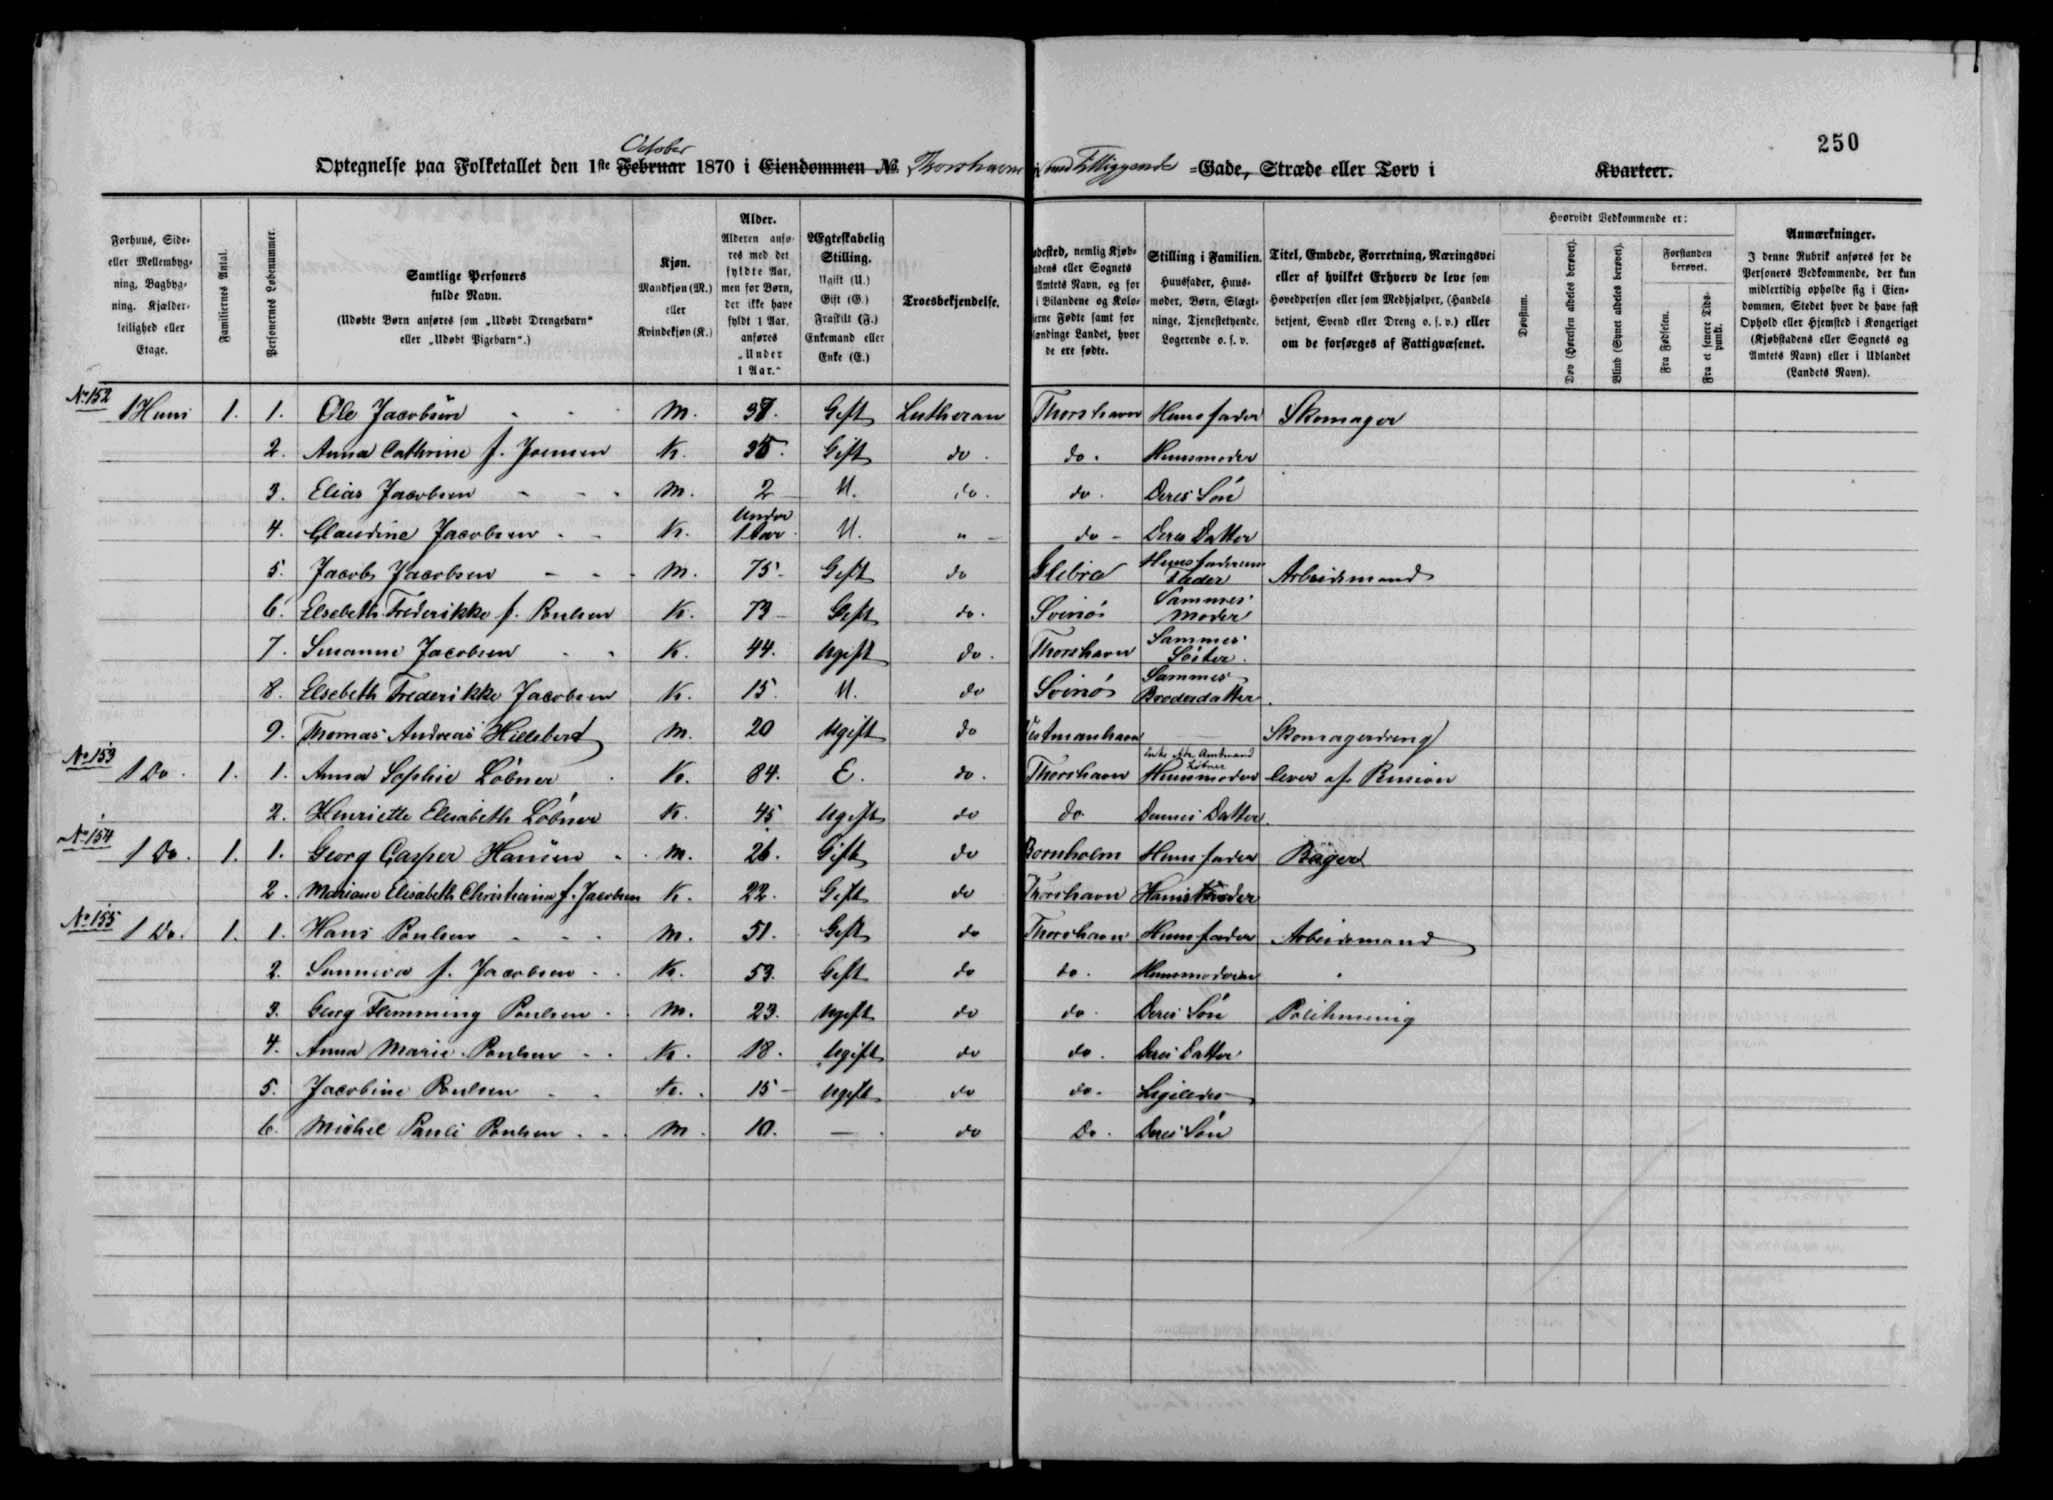 250
October
Optegnelse paa Folketallet den 1ste Februar 1870 i Eiendommen No Thorshavn i med Tilliggende =Gade, Stræde eller Torv i Kvarteer.
Forhuus, Side- eller Mellembyg- ning, Bagbyg- ning. Kjælder- leilighed eller Etage.
Familiernes Antal.
Personernes Løbenummer.
Samtlige Personers fulde Navn. (Udøbte Børn anføres som „Udøbt Drengebarn“ eller „Udøbt Pigebarn“.)
Kjøn. Mandkjøn (M.) eller Kvindekjøn (K.)
Alder. Alderen anfø- res med det fyldte Aar, men for Børn, der ikke have fyldt 1 Aar, anføres „Under 1 Aar.“
Ægteskabelig Stilling. Ugift (U.) Gift (G.) Fraskilt (F.) Enkemand eller Enke (E.)
Troesbekjendelse.
ødested, nemlig Kjøb- adens eller Sognets Amtets Navn, og for i Bilandene og Kolo- ierne Fødte samt for ændinge Landet, hvor de ere fødte.
Stilling i Familien. Huusfader, Huus- moder, Børn, Slægt- ninge, Tjenestetyende, Logerende o. s. v.
Titel, Embede, Forretning, Næringsvei eller af hvilket Erhverv de leve som Hovedperson eller som Medhjælper, (Handels- betjent, Svend eller Dreng o. s. v.) eller om de forsørges af Fattigvæsenet.
Hvorvidt Vedkommende er:
Døvstum.
Døv (Hørelsen aldeles berøvet).
Blind (Synet aldeles berøvet).
Forstanden berøvet.
Fra Fødselen.
Fra et senere Tids- punkt.
Anmærkninger. I denne Rubrik anføres for de Personers Vedkommende, der kun midlertidig opholde sig i Eien- dommen, Stedet hvor de have fast Ophold eller Hjemsted i Kongeriget (Kjøbstadens eller Sognets og Amtets Navn) eller i Udlandet (Landets Navn).
No 152
1 Huus 1. 1. Ole Jacobsen M. 37. Gift Lutheran Thorshavn Huusfader Skomager
2. Anna Cathrine f. Joensen K. 35. Gift do. do. Huusmoder
3. Elias Jacobsen M. 2 U. do. do. Deres Søn
4. Claudine Jacobsen K. Under 1 Aar U. " do Deres Datter
5. Jacob Jacobsen M. 75 Gift do Glibre Huusfaderens Fader Arbeidsmand
6. Elsebeth Frederikke f. Poulsen K. 73 Gift do. Svinø Sammes Moder
7. Susanne Jacobsen K. 44. Ugift do. Thorshavn Sammes Søster.
8. Elsebeth Frederikke Jacobsen K. 15. U. do Svinø Sammes Broderdatter.
9. Thomas Andreas M. 20 Ugift do Vestmanhavn Skomagerdreng
No 153
1 Do. 1. 1. Anna Sophie Løbner K. 84. E. do. Thorshavn Enke efter Amtmand Løbner Huusmoder lever af Pension
2. Henriette Elisabeth Løbner K. 45 Ugift do do. Dennes Datter.
No 154
1 Do. 1. 1. Georg Casper Hansen M. 26. Gift do Bornholm Huusfader Bager
2. Mariane Elisabeth Christiana f. Jacobsen K. 22. Gift do Thorshavn Huusmoder
No 155
1 Do. 1. 1. Hans Poulsen M. 51. Gift do Thorshavn Huusfader Arbeidsmand
2. Sunneva f. Jacobsen K. 53. Gift do do. Huusmoderen
3. Georg Flemming Poulsen M. 23. Ugift do do. Deres Søn Politimenig
4. Anna Marie Poulsen K. 18. Ugift do do. Deres Datter
5. Jacobine Poulsen K. 15 Ugift do do. Ligeledes
6. Michel Pauli Poulsen M. 10. — do Do. Deres Søn